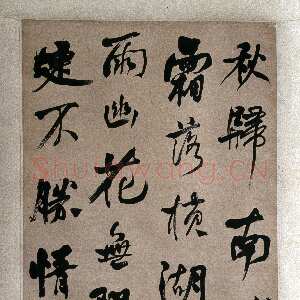 秋歸南
霜落橫湖
雨幽花無
蜨不勝情
Shufawang.CN